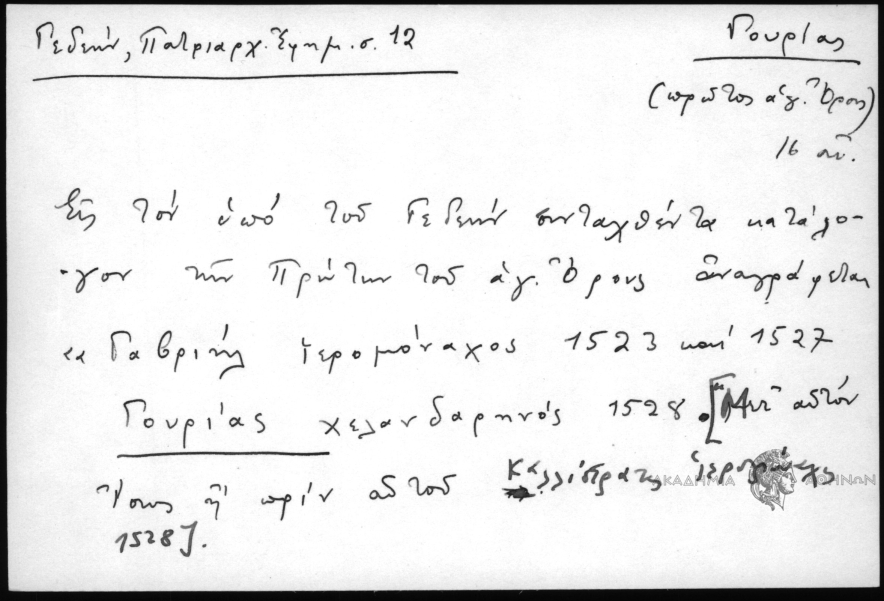 Γεδεών, Πατριαρχ. Ἐφημ. σ. 12
Γουρίας
(πρῶτος ἁγ. Ὄρους)
16 αἰ.
Εἰς τόν ὑπό τοῦ Γεδεών συνταχθέντα κατάλο-
-γον τῶν Πρώτων τοῦ ἁγ. Ὄρους ἀναγράφεται
«Γαβριήλ ἱερομόναχος 1523 καί 1527
Γουρίας χελανδαρηνός 1528. [Μετ' αὐτόν
ἴσως ἤ πρίν αὐτοῦ Καλλίστρατος ἱερομόναχος
1528].
ΑΚΑΔΗΜΙΑ ΑΘΗΝΩΝ